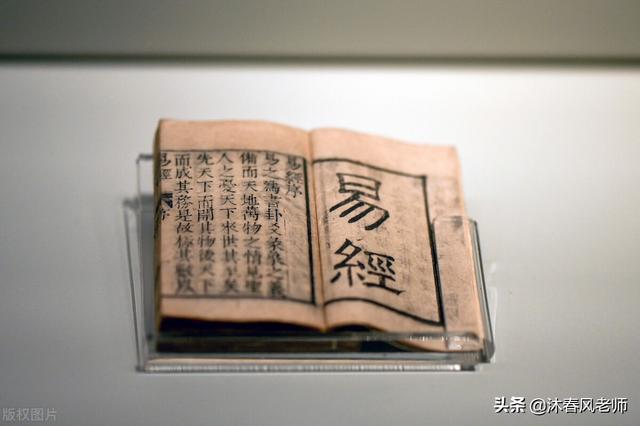 易經
易經序
易之為書卦爻彖象之義
備而天地萬物之情見聖
人之憂天下來世其至矣
先天下而開其物後天下
而成其務是故極其數以
易經 序
版权图片
头条 @沐春风老师